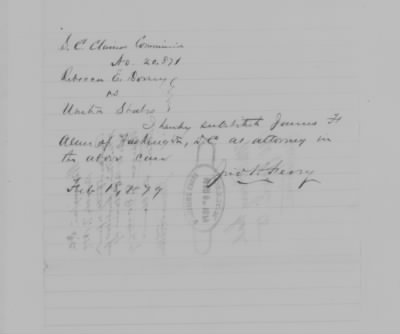 S. C. Claims Commission
No. 20,871
Rebecca C.
vs
United States
I hereby substitute James H
of Washington, D.C as attorney in
the above case
Feb 18, 1879